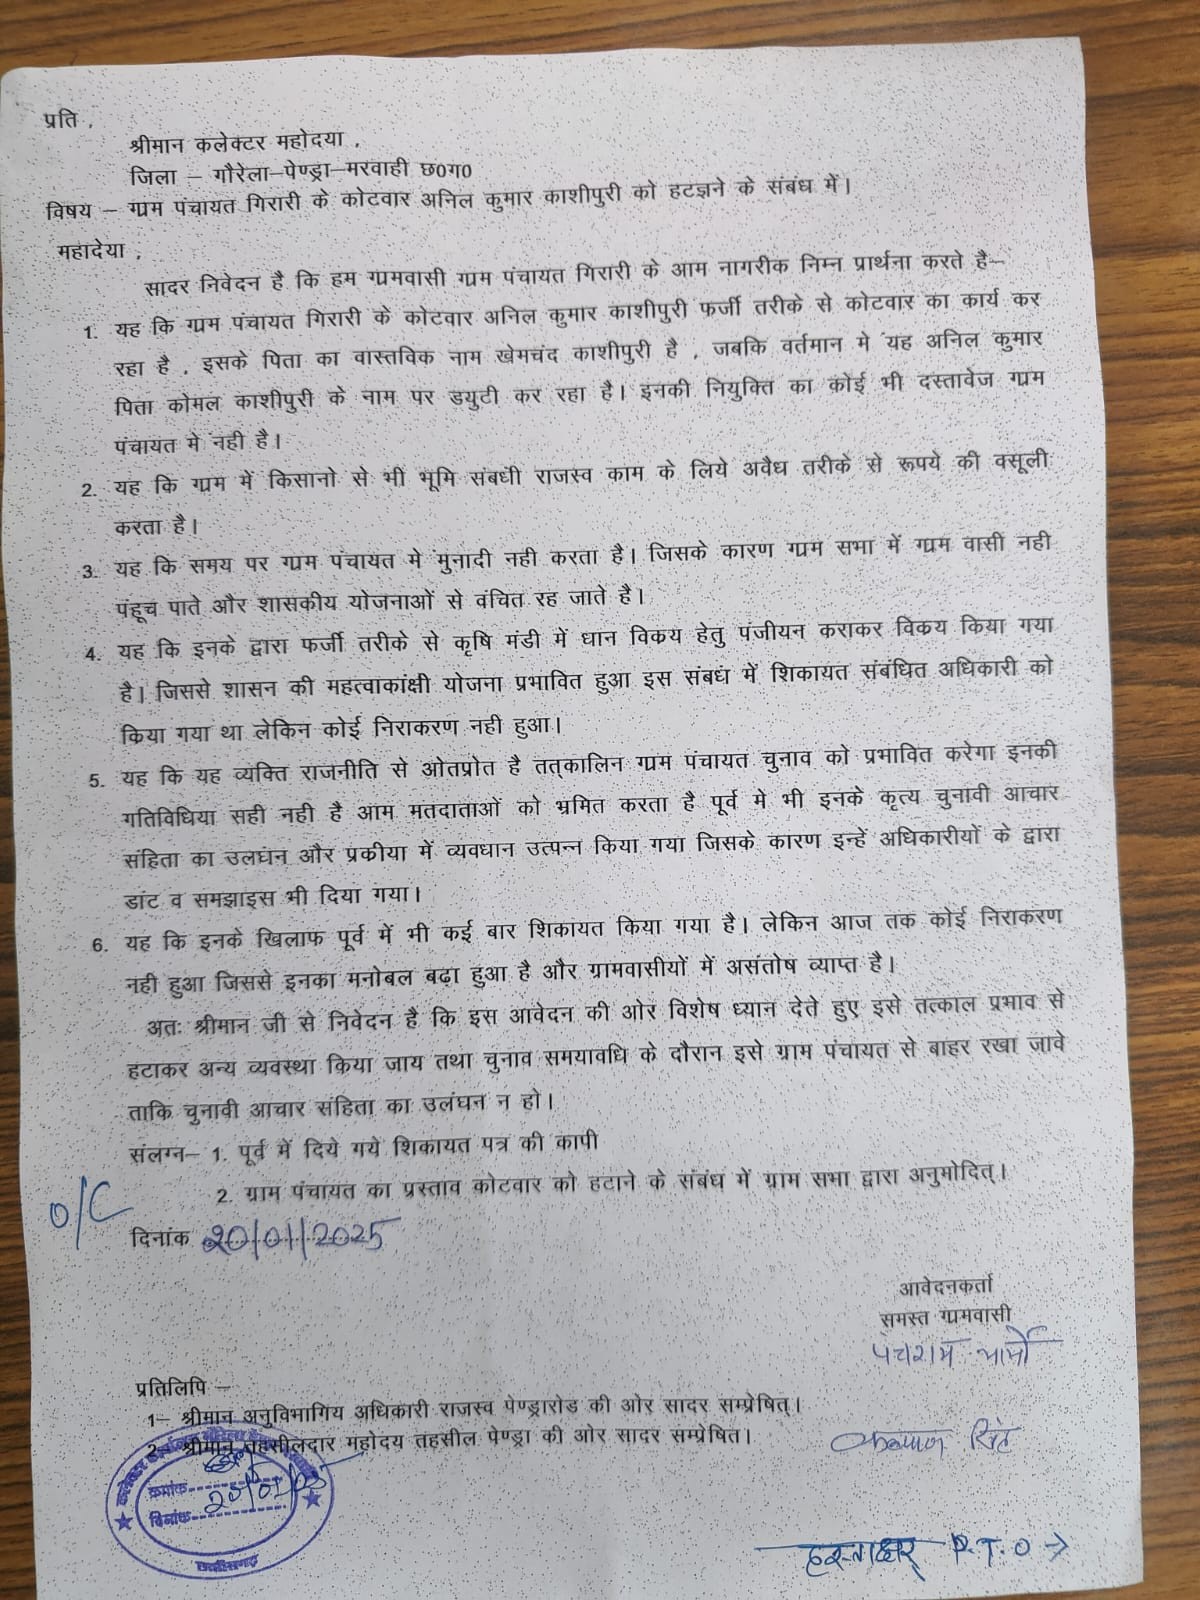 प्रति ,
श्रीमान कलेक्टर महोदया ,
जिला – गौरेला–पेण्ड्रा–मरवाही छ0ग0
विषय – ग्राम पंचायत गिरारी के कोटवार अनिल कुमार काशीपुरी को हटज्ञने के संबंध में।
महादेया ,
सादर निवेदन है कि हम ग्रामवासी ग्राम पंचायत गिरारी के आम नागरीक निम्न प्रार्थना करते है–
1. यह कि ग्राम पंचायत गिरारी के कोटवार अनिल कुमार काशीपुरी फर्जी तरीके से कोटवार का कार्य कर
रहा है , इसके पिता का वास्तविक नाम खेमचंद काशीपुरी है , जबकि वर्तमान मे यह अनिल कुमार
पिता कोमल काशीपुरी के नाम पर डयुटी कर रहा है। इनकी नियुक्ति का कोई भी दस्तावेज ग्राम
पंचायत मे नही है।
2. यह कि ग्राम में किसानो से भी भूमि संबधी राजस्व काम के लिये अवैध तरीके से रूपये की वसूली
करता है।
3. यह कि समय पर ग्राम पंचायत मे मुनादी नही करता है। जिसके कारण ग्राम सभा में ग्राम वासी नही
पंहूच पाते और शासकीय योजनाओं से वंचित रह जाते है।
4. यह कि इनके द्वारा फर्जी तरीके से कृषि मंडी में धान विकय हेतु पंजीयन कराकर विकय किया गया
है। जिससे शासन की महत्वाकांक्षी योजना प्रभावित हुआ इस संबधं में शिकायत संबंधित अधिकारी को
किया गया था लेकिन कोई निराकरण नही हुआ।
5. यह कि यह व्यक्ति राजनीति से ओतप्रोत है तत्कालिन ग्राम पंचायत चुनाव को प्रभावित करेगा इनकी
गतिविधिया सही नही है आम मतदाताओं को भ्रमित करता है पूर्व मे भी इनके कृत्य चुनावी आचार
संहिता का उलघंन और प्रकीया में व्यवधान उत्पन्न किया गया जिसके कारण इन्हें अधिकारीयों के द्वारा
डांट व समझाइस भी दिया गया।
6. यह कि इनके खिलाफ पूर्व में भी कई बार शिकायत किया गया है। लेकिन आज तक कोई निराकरण
नही हुआ जिससे इनका मनोबल बढ़ा हुआ है और ग्रामवासीयों में असंतोष व्याप्त है।
अतः श्रीमान जी से निवेदन है कि इस आवेदन की ओर विशेष ध्यान देते हुए इसे तत्काल प्रभाव से
हटाकर अन्य व्यवस्था किया जाय तथा चुनाव समयावधि के दौरान इसे ग्राम पंचायत से बाहर रखा जावे
ताकि चुनावी आचार संहिता का उलंघन न हो।
संलग्न– 1. पूर्व में दिये गये शिकायत पत्र की कापी
2. ग्राम पंचायत का प्रस्ताव कोटवार को हटाने के संबंध में ग्राम सभा द्वारा अनुमोदित्।
O/C
दिनांक 20/01/2025
आवेदनकर्ता
समस्त ग्रामवासी
पंचराम
प्रतिलिपि –
1– श्रीमान अनुविभागिय अधिकारी राजस्व पेण्ड्रारोड की ओर सादर सम्प्रेषित्।
2– श्रीमान तहसीलदार महोदय तहसील पेण्ड्रा की ओर सादर सम्प्रेषित।
कल्याण सिंह
क्रमांक
दिनांक 20/01/25
छत्तीसगढ़
हस्ताक्षर P.T.O →